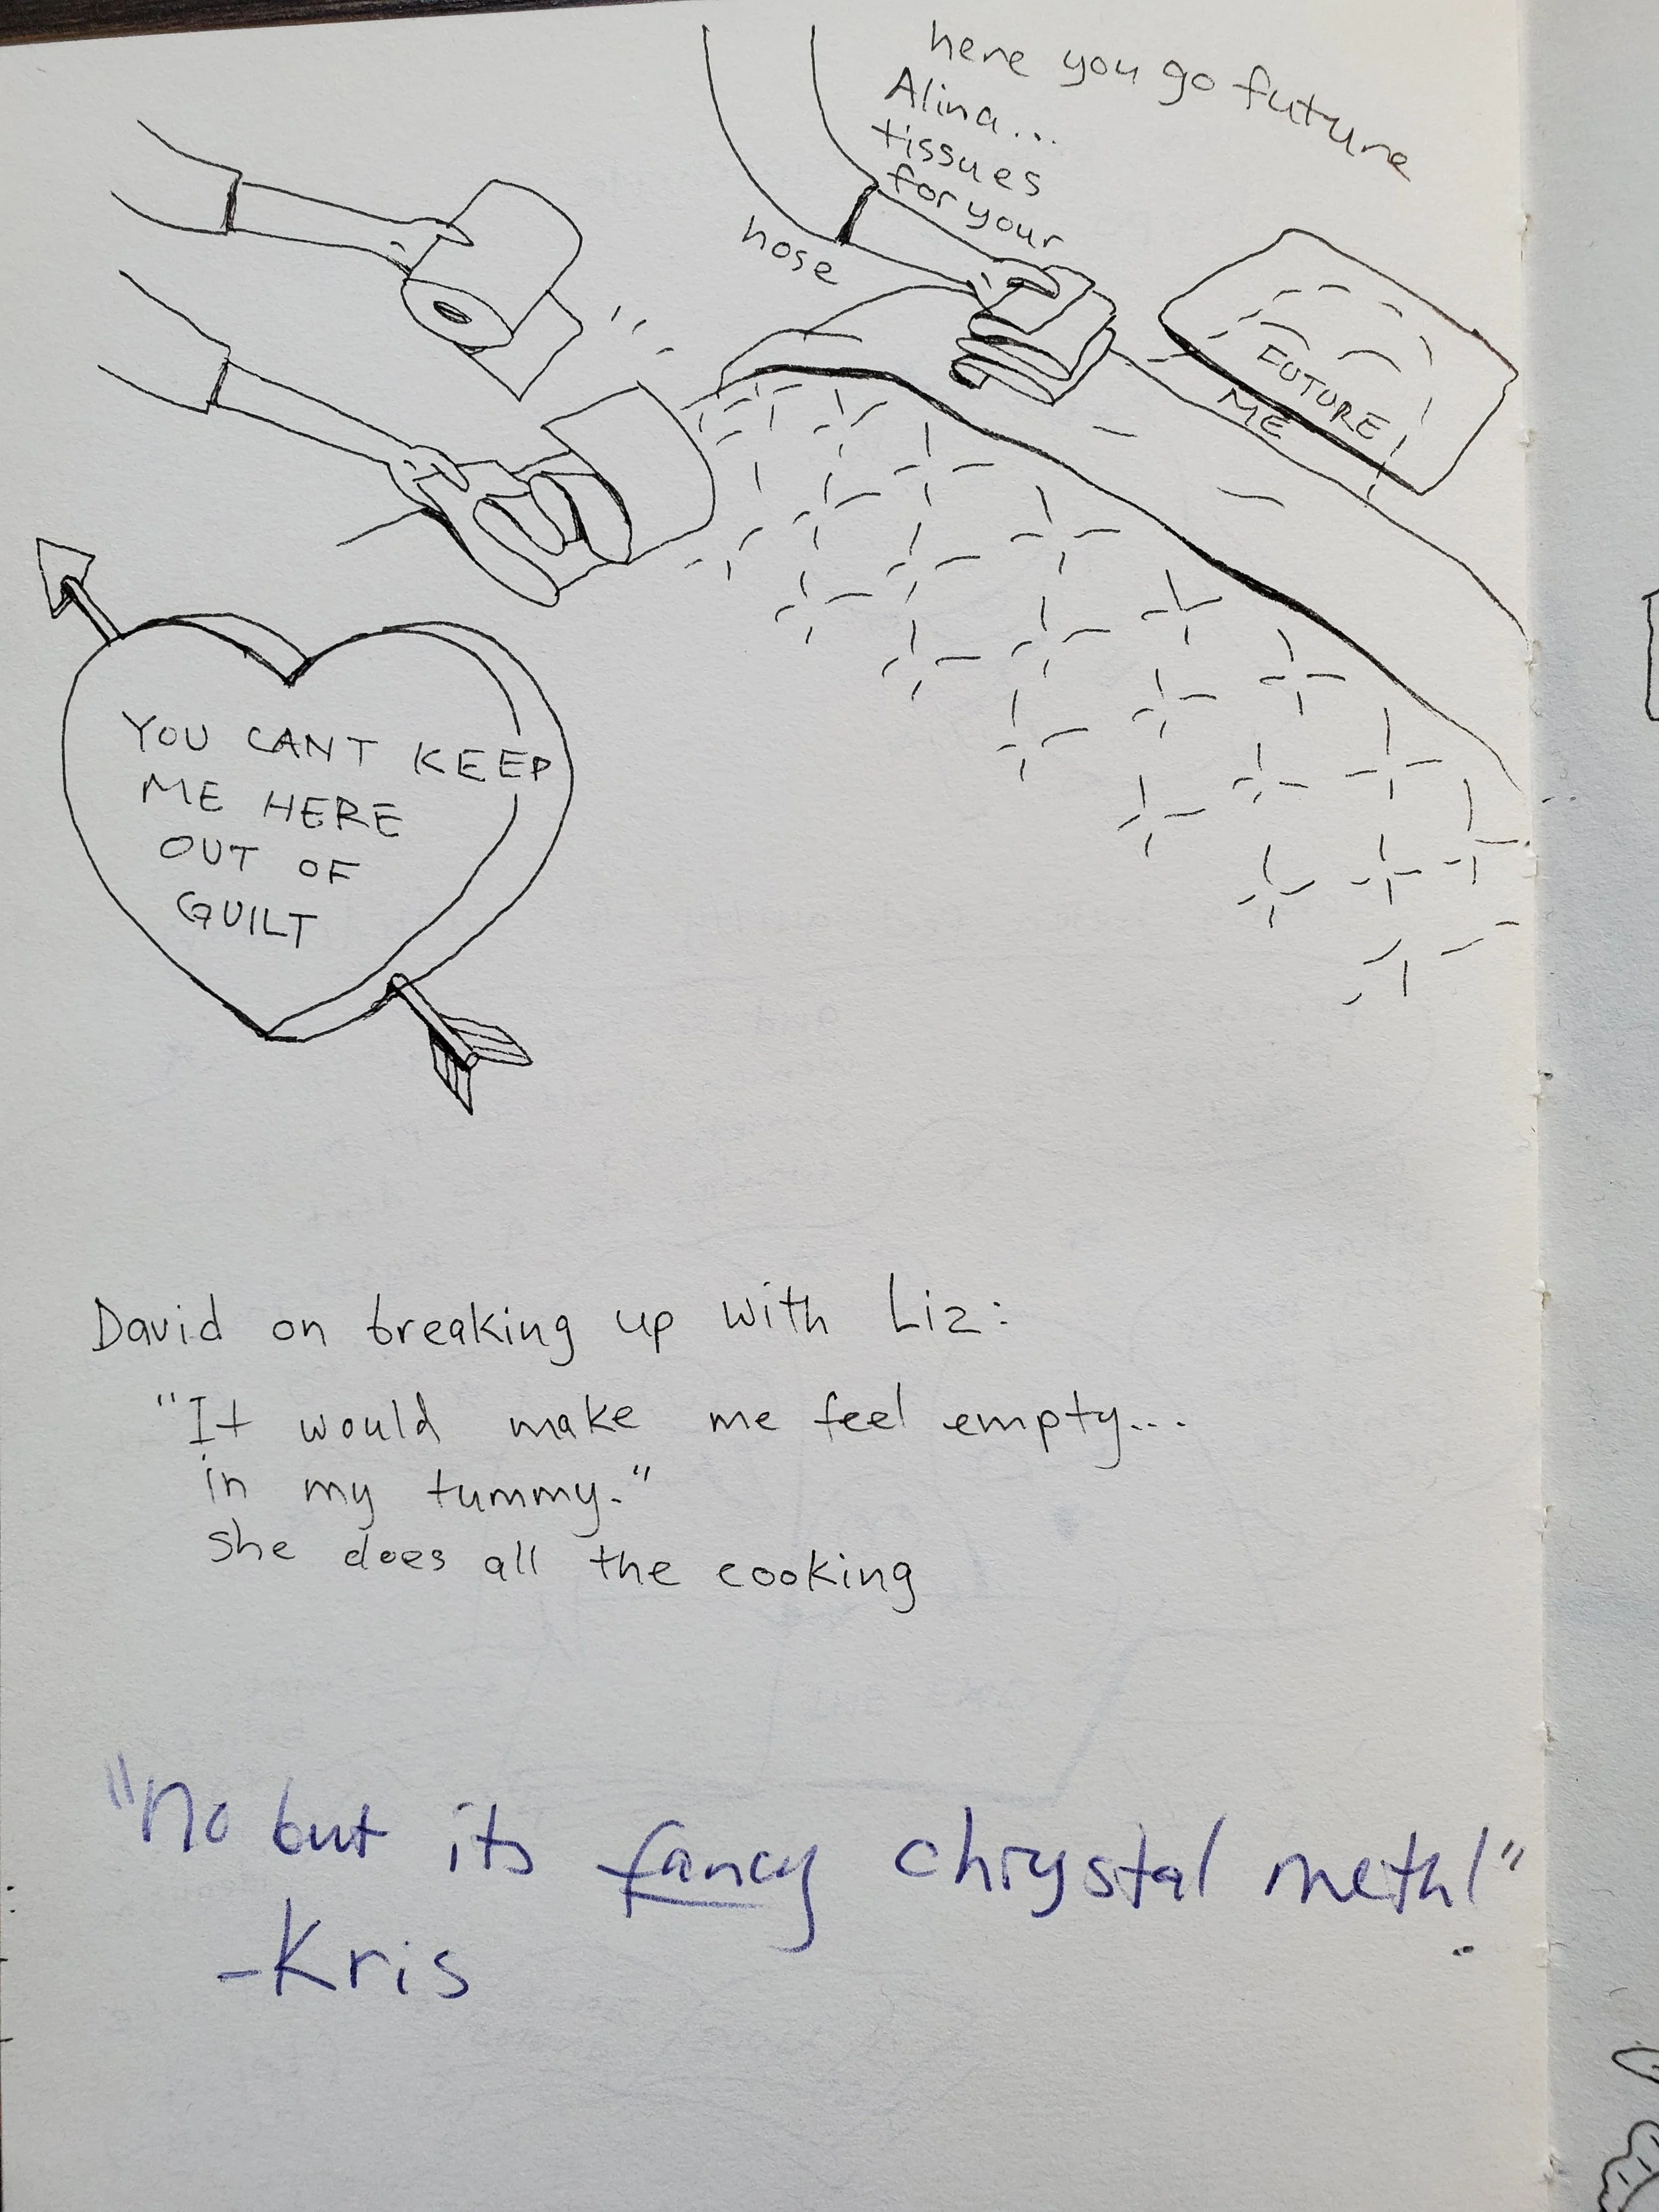 here you go future
Alina...
tissues
for your
nose
FUTURE
ME
YOU CANT KEEP
ME HERE
OUT OF
GUILT
David on breaking up with Liz:
"It would make me feel empty...
in my tummy."
she does all the cooking
"No but its fancy chrystal meth!"
-Kris